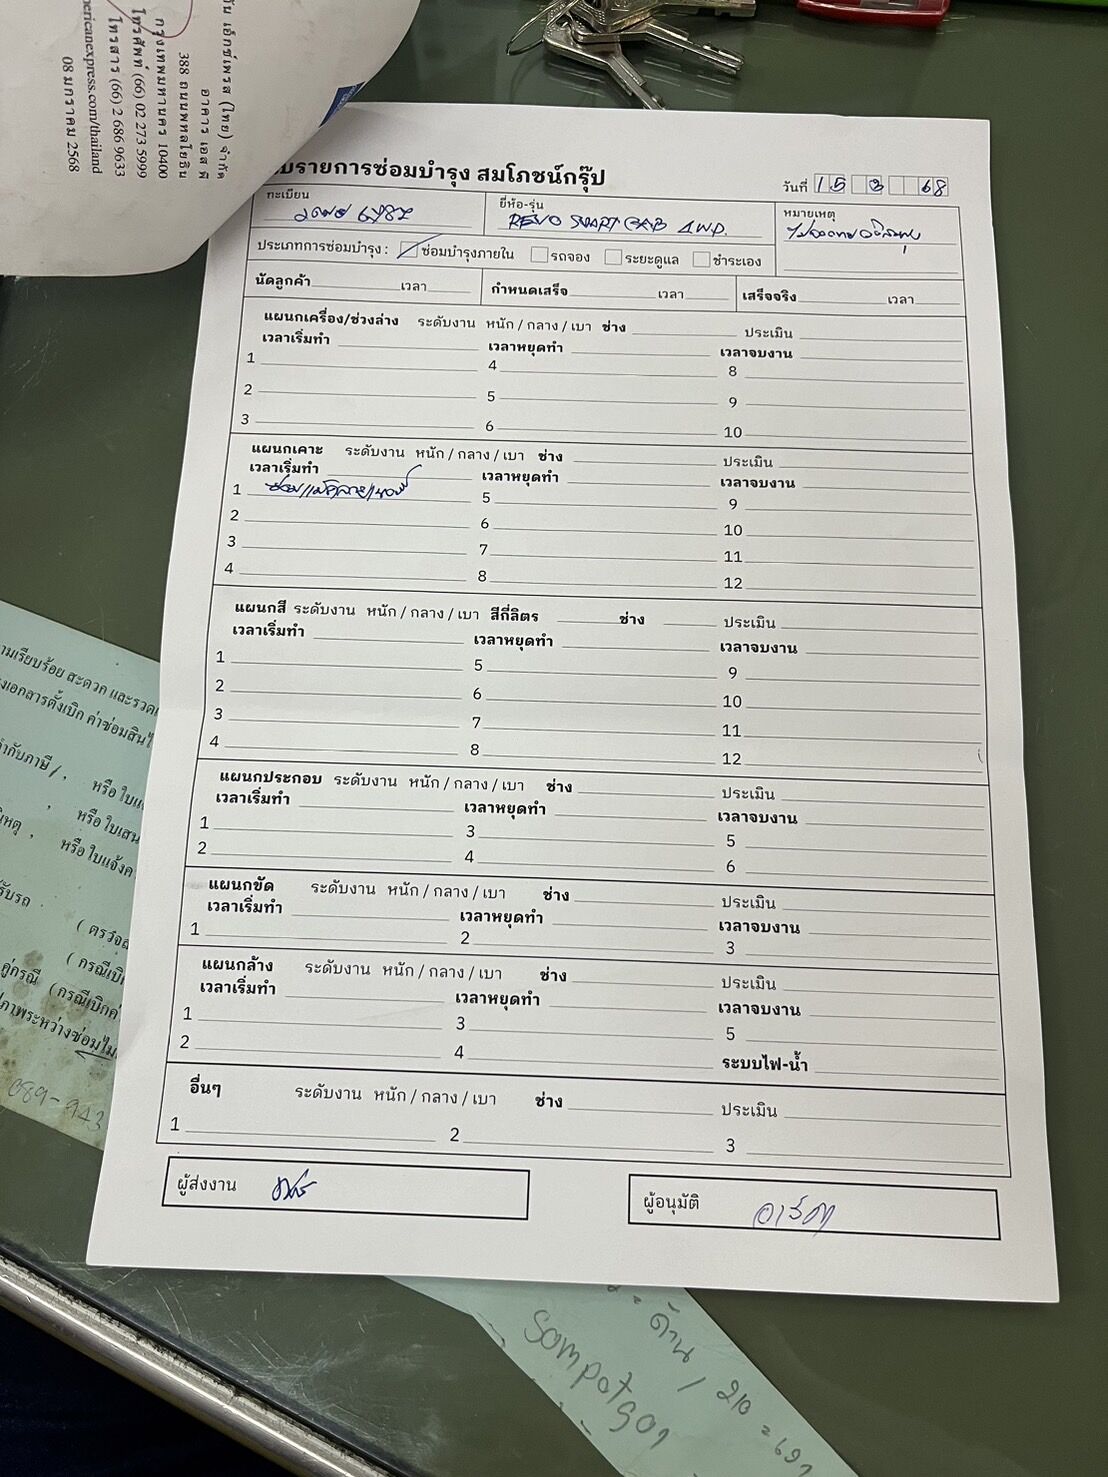 ัน เอ็กซ์เพรส (ไทย) จำกัด
อาคาร เอส พี
388 ถนนพหลโยธิน
กรุงเทพมหานคร 10400
โทรศัพท์ (66) 02 273 5999
โทรสาร (66) 2 686 9633
mericanexpress.com/thailand
08 มกราคม 2568
บรายการซ่อมบำรุง สมโภชน์กรุ๊ป
วันที่ 15 3 68
ทะเบียน
ยี่ห้อ-รุ่น REVO SMART CAB 4W.D.
หมายเหตุ
ประเภทการซ่อมบำรุง : ซ่อมบำรุงภายใน รถจอง ระยะดูแล ชำระเอง
นัดลูกค้า เวลา กำหนดเสร็จ เวลา เสร็จจริง เวลา
แผนกเครื่อง/ช่วงล่าง ระดับงาน หนัก / กลาง / เบา ช่าง ประเมิน
เวลาเริ่มทำ เวลาหยุดทำ เวลาจบงาน
1 4 8
2 5 9
3 6 10
แผนกเคาะ ระดับงาน หนัก / กลาง / เบา ช่าง ประเมิน
เวลาเริ่มทำ เวลาหยุดทำ เวลาจบงาน
1 5 9
2 6 10
3 7 11
4 8 12
แผนกสี ระดับงาน หนัก / กลาง / เบา สีกี่ลิตร ช่าง ประเมิน
เวลาเริ่มทำ เวลาหยุดทำ เวลาจบงาน
1 5 9
2 6 10
3 7 11
4 8 12
แผนกประกอบ ระดับงาน หนัก / กลาง / เบา ช่าง ประเมิน
เวลาเริ่มทำ เวลาหยุดทำ เวลาจบงาน
1 3 5
2 4 6
แผนกขัด ระดับงาน หนัก / กลาง / เบา ช่าง ประเมิน
เวลาเริ่มทำ เวลาหยุดทำ เวลาจบงาน
1 2 3
แผนกล้าง ระดับงาน หนัก / กลาง / เบา ช่าง ประเมิน
เวลาเริ่มทำ เวลาหยุดทำ เวลาจบงาน
1 3 5
2 4 ระบบไฟ-น้ำ
อื่นๆ ระดับงาน หนัก / กลาง / เบา ช่าง ประเมิน
1 2 3
ผู้ส่งงาน
ผู้อนุมัติ
ามเรียบร้อย สะดวก และรวดเ
งเอกสารตั้งเบิก ค่าซ่อมสินไ
ำกับภาษี / , หรือ ใบแ
, หรือ ใบเสน
นเหตุ , หรือ ใบแจ้งค
รับรถ
( ตรวจส
( กรณีเบิก
คู่กรณี ( กรณีเบิกค่
ภาพระหว่างซ่อมไม
089-943
ด้าน /
Sompotgor